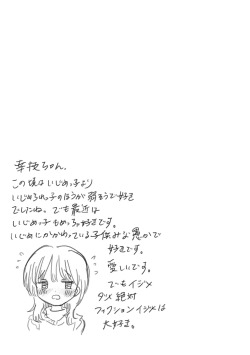 幸枝ちゃん。
この頃はいじめっ子より
いじめられっ子のほうが弱そうで好き
でしたね、でも最近は
いじめっ子もめっちゃ好きです。
いじめにかかわっている子供みな愚かで
好きです。
愛しいです。
でもイジメ
ダメ絶対
フィクションイジメは
大好き。